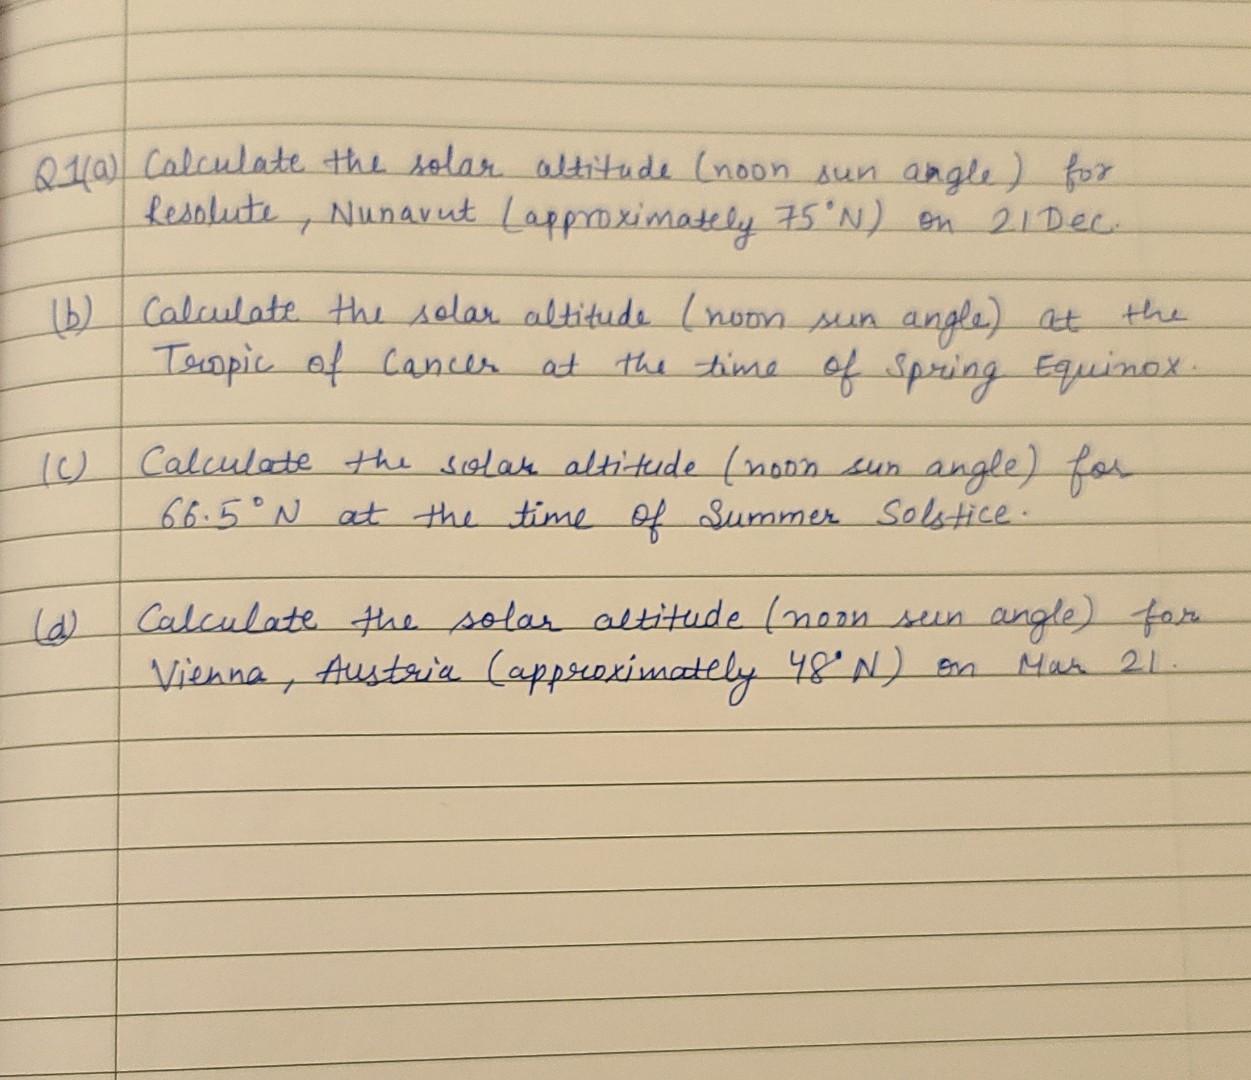 Q1(a) Calculate the solar altitude (noon sun angle) for
Resolute, Nunavut (approximately 75°N) on 21 Dec.
(b) Calculate the solar altitude (noon sun angle) at the
Tropic of Cancer at the time of Spring Equinox.
(c) Calculate the solar altitude (noon sun angle) for
66.5°N at the time of Summer Solstice.
(d) Calculate the solar altitude (noon sun angle) for
Vienna, Austria (approximately 48°N) on Mar 21.